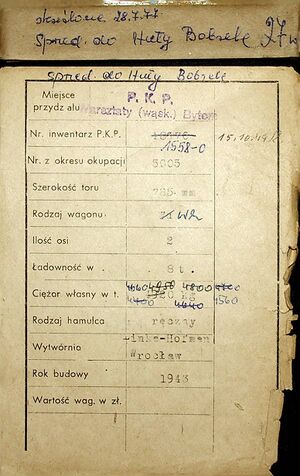 skreślono 28.7.77
Sprzed. do Huty Bobrek 27 w
sprzed. do Huty Bobrek
Miejsce przydziału P. K. P.
Warsztaty (wąsk.) Bytom
Nr. inwentarz P.K.P. 15.10.19
1558-0
Nr. z okresu okupacji 5005
Szerokość toru 785 mm
Rodzaj wagonu Wk
Ilość osi 2
Ładowność w . 8t.
4660 4950 4800
Ciężar własny w t. kg
4640 4560
Rodzaj hamulca ręczny
Wytwórnia Linke-Hofman
Wrocław
Rok budowy 1943
Wartość wag. w zł.